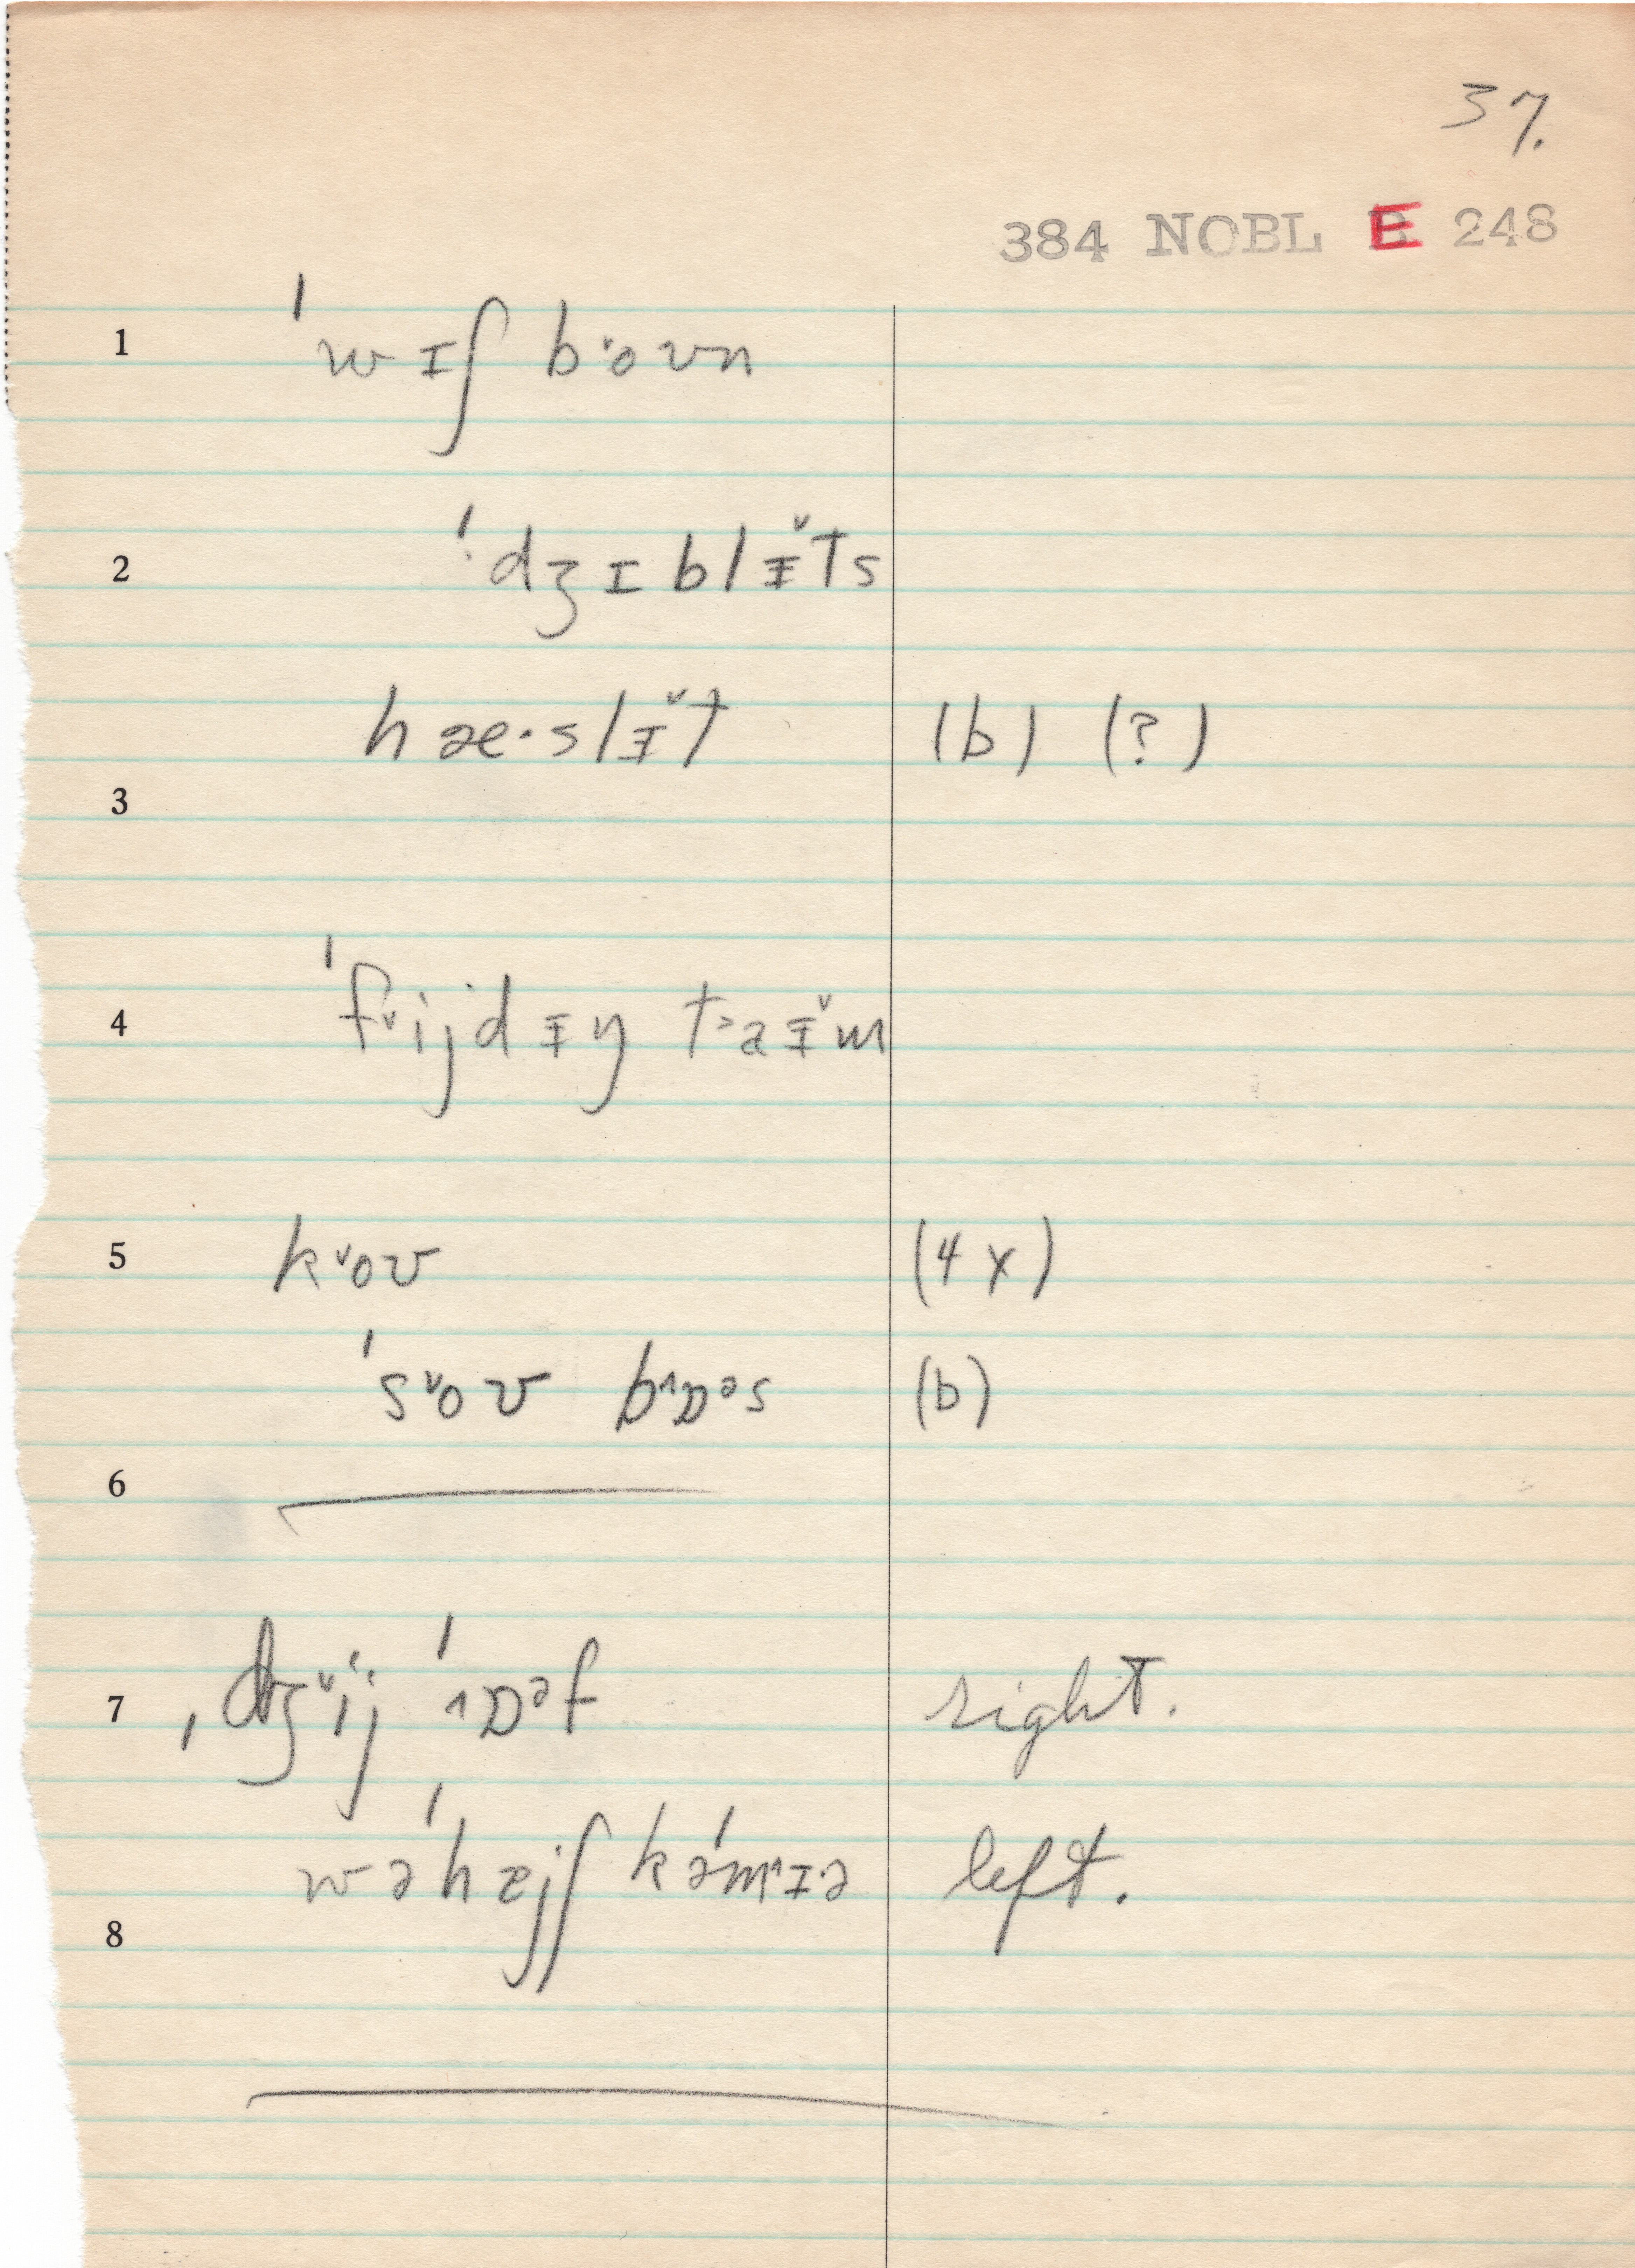 37.
384 NOBL E 248
1 ˈwɪʃ bˑoʊn
2 ˈdʒɪblᵻ̌ts
hæ·slᵻ̌t (b) (?)
3
4 ˈfᵛijdᵻŋ t˃aᵻ̌m
5 kᵛoʊ (4x)
ˈsᵛoʊ b^ɒᵊs (b)
6
7 ˌdʒᵛij ˈ^ɒᵊf right.
wəˈhejʃ kəˈm^ɪ·ə left.
8